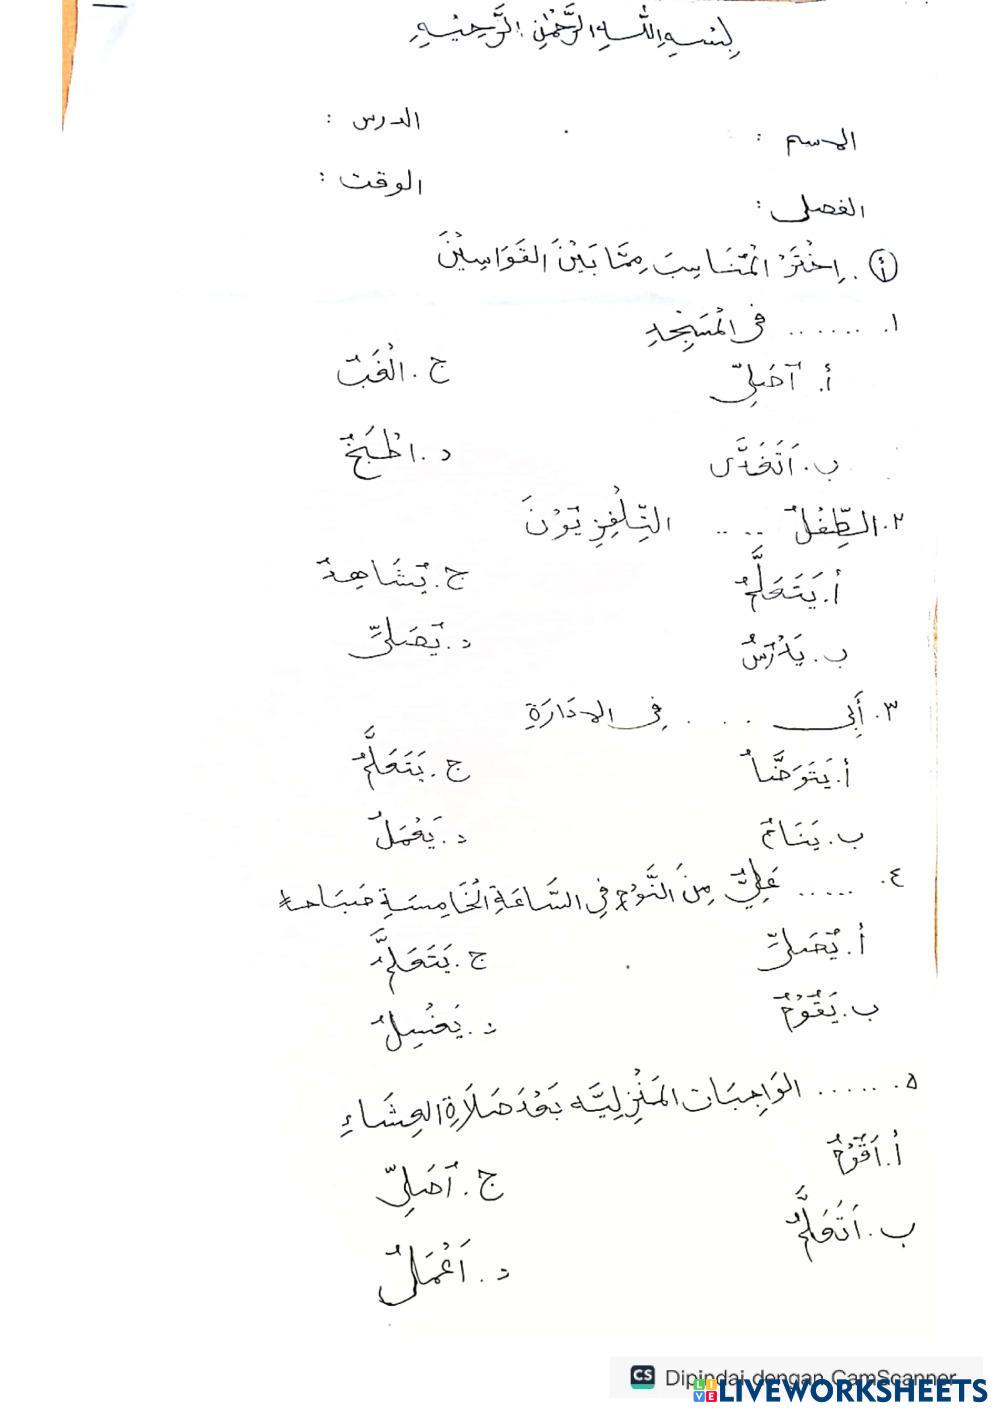 بِسْمِ اللّٰهِ الرَّحْمٰنِ الرَّحِيْمِ
الاسم : الدرس :
الفصل : الوقت :
أ. اِخْتَرْ الْمُنَاسِبَ مِمَّا بَيْنَ القَوَاسِيْنَ
١. ...... فى الْمَسْجِدِ
أ. اُصَلِىّ ج. الْعَبُ
ب. اَتَغَدَّى د. اطْبَخُ
٢. الطِّفْلُ .... التِّلْفِزِيَوْنَ
أ. يَتَعَلَّمُ ج. يُشَاهِدُ
ب. يَدْرُسُ د. يُصَلِىّ
٣. أَبِى .... فِى الادَارَةِ
أ. يَتَوَضَّأُ ج. يَتَعَلَّمُ
ب. يَنَامُ د. يَعْمَلُ
٤. ..... عَلِيٌّ مِنَ النَّوْمِ فِى السَّاعَةِ الْخَامِسَةِ صَبَاحًا
أ. يُصَلِىّ ج. يَتَعَلَّمُ
ب. يَقُوْمُ د. يَغْسِلُ
٥. ...... الوَاجِبَات المَنْزِلِيَّه بَعْدَ صَلَاةِ العِشَاءِ
أ. اَقُوْمُ ج. اُصَلِىّ
ب. اَتَعَلَّمُ د. اَعْمَلُ
CS Dipindai dengan CamScanner
LIVE LIVEWORKSHEETS